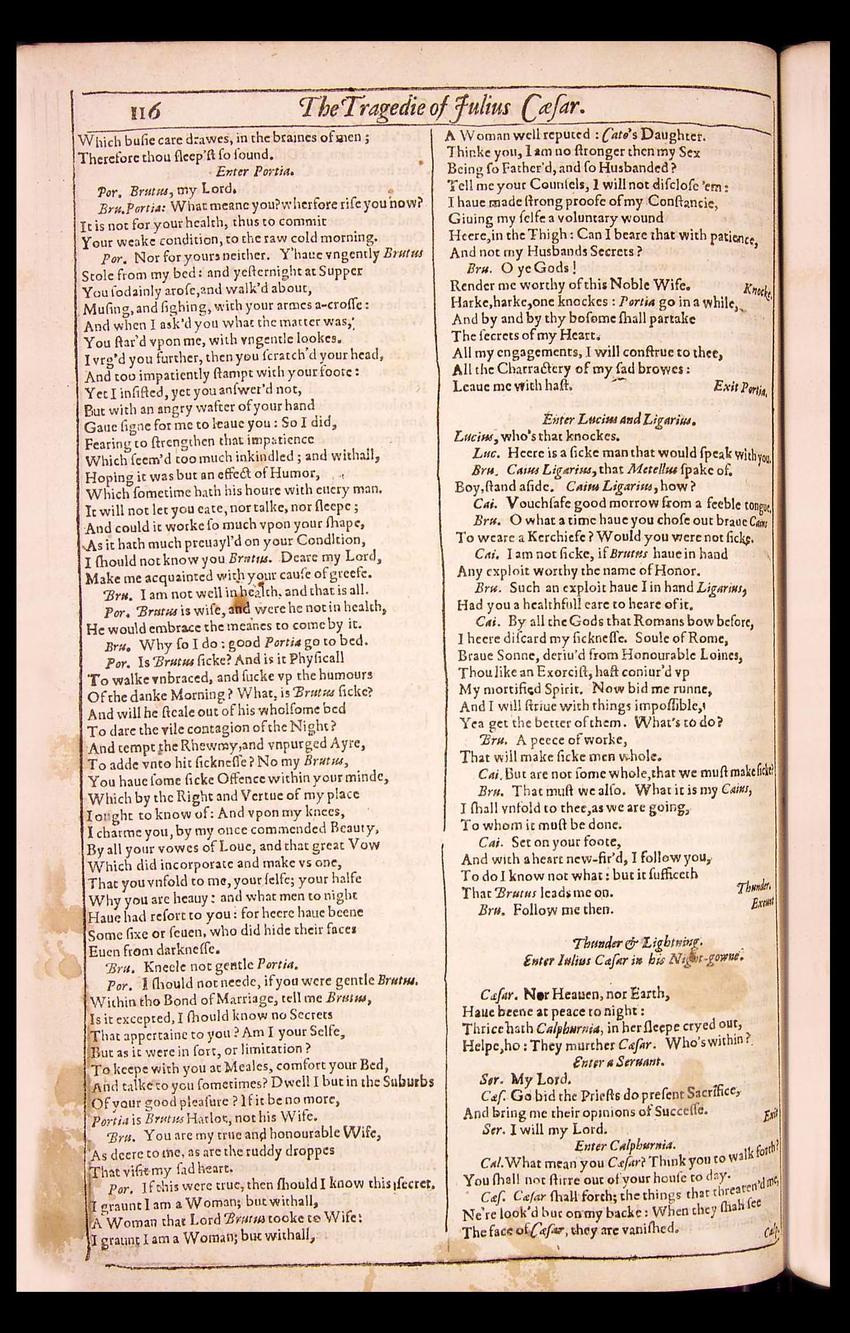 116
The Tragedie of Julius Cæſar.
Which buſie care drawes, in the braines of men ;
Therefore thou ſleep'ſt ſo ſound.
Enter Portia.
Por. Brutus, my Lord.
Bru. Portia: What meane you? wherfore riſe you now?
It is not for your health, thus to commit
Your weake condition, to the raw cold morning.
Por. Nor for yours neither. Y'haue vngently Brutus
Stole from my bed: and yeſternight at Supper
You ſodainly aroſe, and walk'd about,
Muſing, and ſighing, with your armes a-croſſe:
And when I ask'd you what the matter was,
You ſtar'd vpon me, with vngentle lookes.
I vrg'd you further, then you ſcratch'd your head,
And too impatiently ſtampt with your foote:
Yet I inſiſted, yet you anſwer'd not,
But with an angry wafter of your hand
Gaue ſigne for me to leaue you: So I did,
Fearing to ſtrengthen that impatience
Which ſeem'd too much inkindled ; and withall,
Hoping it was but an effect of Humor,
Which ſometime hath his houre with euery man.
It will not let you eate, nor talke, nor ſleepe ;
And could it worke ſo much vpon your ſhape,
As it hath much preuayl'd on your Condition,
I ſhould not know you Brutus. Deare my Lord,
Make me acquainted with your cauſe of greefe.
Bru. I am not well in health, and that is all.
Por. Brutus is wiſe, and were he not in health,
He would embrace the meanes to come by it.
Bru. Why ſo I do : good Portia go to bed.
Por. Is Brutus ſicke? And is it Phyſicall
To walke vnbraced, and ſucke vp the humours
Of the danke Morning? What, is Brutus ſicke?
And will he ſteale out of his wholſome bed
To dare the vile contagion of the Night?
And tempt the Rhewmy, and vnpurged Ayre,
To adde vnto hit ſickneſſe? No my Brutus,
You haue ſome ſicke Offence within your minde,
Which by the Right and Vertue of my place
I ought to know of: And vpon my knees,
I charme you, by my once commended Beauty,
By all your vowes of Loue, and that great Vow
Which did incorporate and make vs one,
That you vnfold to me, your ſelfe; your halfe
Why you are heauy: and what men to night
Haue had reſort to you: for heere haue beene
Some ſixe or ſeuen, who did hide their faces
Euen from darkneſſe.
Bru. Kneele not gentle Portia.
Por. I ſhould not neede, if you were gentle Brutus.
Within the Bond of Marriage, tell me Brutus,
Is it excepted, I ſhould know no Secrets
That appertaine to you ? Am I your Selfe,
But as it were in ſort, or limitation ?
To keepe with you at Meales, comfort your Bed,
And talke to you ſometimes? Dwell I but in the Suburbs
Of your good pleaſure ? If it be no more,
Portia is Brutus Harlot, not his Wife.
Bru. You are my true and honourable Wife,
As deere to me, as are the ruddy droppes
That viſit my ſad heart.
Por. If this were true, then ſhould I know this ſecret.
I graunt I am a Woman; but withall,
A Woman that Lord Brutus tooke to Wife:
I graunt I am a Woman; but withall,
A Woman well reputed : Cato's Daughter.
Thinke you, I am no ſtronger then my Sex
Being ſo Father'd, and ſo Husbanded?
Tell me your Counſels, I will not diſcloſe 'em:
I haue made ſtrong proofe of my Conſtancie,
Giuing my ſelfe a voluntary wound
Heere, in the Thigh : Can I beare that with patience,
And not my Husbands Secrets ?
Bru. O ye Gods !
Render me worthy of this Noble Wife. Knocke.
Harke, harke, one knockes : Portia go in a while,
And by and by thy boſome ſhall partake
The ſecrets of my Heart.
All my engagements, I will conſtrue to thee,
All the Charractery of my ſad browes:
Leaue me with haſt. Exit Portia.
Enter Lucius and Ligarius.
Lucius, who's that knockes.
Luc. Heere is a ſicke man that would ſpeak with you.
Bru. Caius Ligarius, that Metellus ſpake of.
Boy, ſtand aſide. Caius Ligarius, how ?
Cai. Vouchſafe good morrow from a feeble tongue.
Bru. O what a time haue you choſe out braue Caius
To weare a Kerchiefe ? Would you were not ſicke.
Cai. I am not ſicke, if Brutus haue in hand
Any exploit worthy the name of Honor.
Bru. Such an exploit haue I in hand Ligarius,
Had you a healthfull eare to heare of it.
Cai. By all the Gods that Romans bow before,
I heere diſcard my ſickneſſe. Soule of Rome,
Braue Sonne, deriu'd from Honourable Loines,
Thou like an Exorciſt, haſt coniur'd vp
My mortified Spirit. Now bid me runne,
And I will ſtriue with things impoſſible,
Yea get the better of them. What's to do?
Bru. A peece of worke,
That will make ſicke men whole.
Cai. But are not ſome whole, that we muſt make ſicke?
Bru. That muſt we alſo. What it is my Caius,
I ſhall vnfold to thee, as we are going,
To whom it muſt be done.
Cai. Set on your foote,
And with a heart new-fir'd, I follow you,
To do I know not what : but it ſufficeth
That Brutus leads me on. Thunder.
Bru. Follow me then. Exeunt
Thunder & Lightning.
Enter Iulius Cæſar in his Night-gowne.
Cæſar. Nor Heauen, nor Earth,
Haue beene at peace to night :
Thrice hath Calphurnia, in her ſleepe cryed out,
Helpe, ho : They murther Cæſar. Who's within?
Enter a Seruant.
Ser. My Lord.
Cæſ. Go bid the Prieſts do preſent Sacrifice,
And bring me their opinions of Succeſſe.
Ser. I will my Lord. Exit
Enter Calphurnia.
Cal. What mean you Cæſar? Think you to walk forth?
You ſhall not ſtirre out of your houſe to day.
Cæſ. Cæſar ſhall forth; the things that threaten'd me,
Ne're look'd but on my backe : When they ſhall ſee
The face of Cæſar, they are vaniſhed.
Calp.